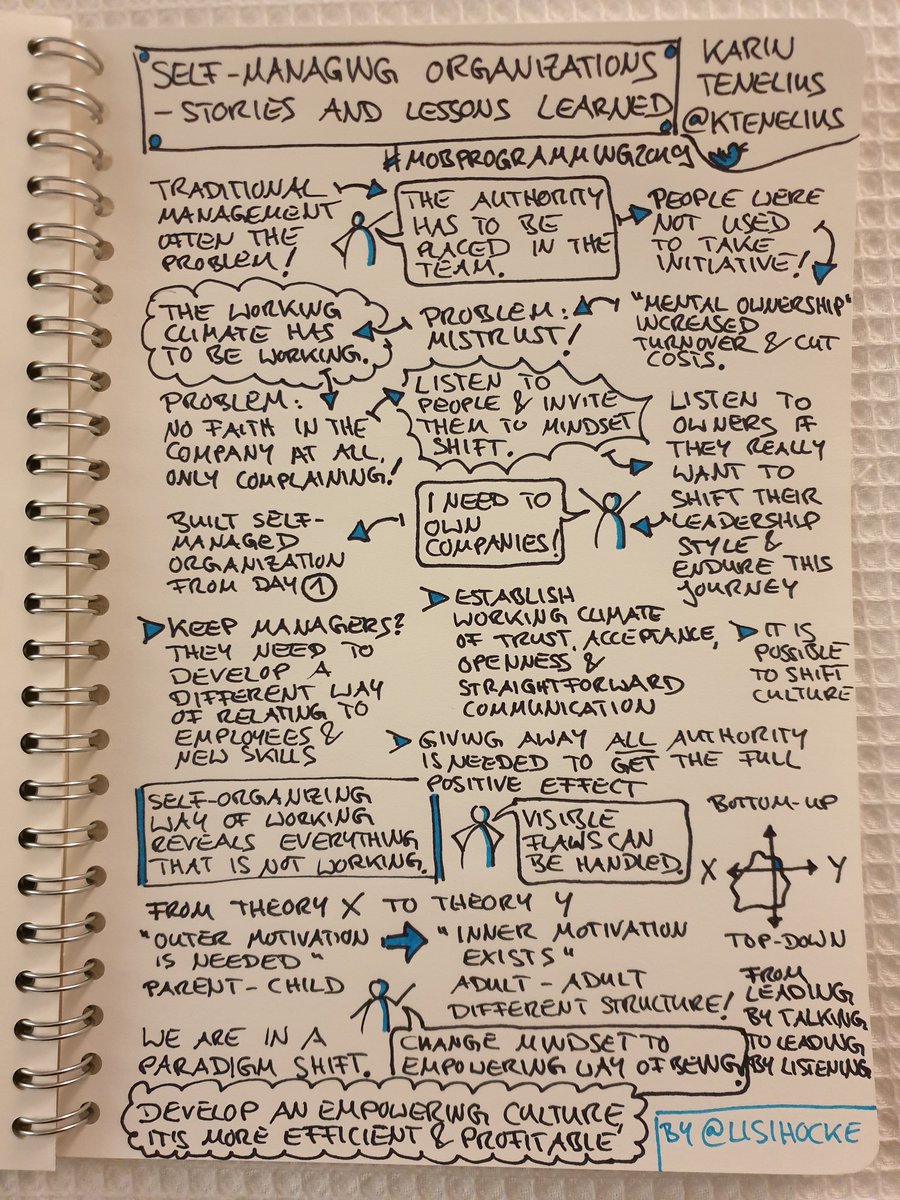 SELF-MANAGING ORGANIZATIONS
- STORIES AND LESSONS LEARNED
KARIN
TENELIUS
@KTENELIUS
#MOBPROGRAMMING2019
TRADITIONAL
MANAGEMENT
OFTEN THE
PROBLEM!
THE AUTHORITY
HAS TO BE
PLACED IN THE
TEAM.
PEOPLE WERE
NOT USED
TO TAKE
INITIATIVE!
"MENTAL OWNERSHIP"
INCREASED
TURNOVER & CUT
COSTS.
PROBLEM:
MISTRUST!
THE WORKING
CLIMATE HAS
TO BE WORKING.
PROBLEM:
NO FAITH IN THE
COMPANY AT ALL,
ONLY COMPLAINING!
LISTEN TO
PEOPLE & INVITE
THEM TO MINDSET
SHIFT.
LISTEN TO
OWNERS IF
THEY REALLY
WANT TO
SHIFT THEIR
LEADERSHIP
STYLE &
ENDURE THIS
JOURNEY
I NEED TO
OWN
COMPANIES!
BUILT SELF-
MANAGED
ORGANIZATION
FROM DAY 1
KEEP MANAGERS?
THEY NEED TO
DEVELOP A
DIFFERENT WAY
OF RELATING TO
EMPLOYEES &
NEW SKILLS
ESTABLISH
WORKING CLIMATE
OF TRUST, ACCEPTANCE,
OPENNESS &
STRAIGHTFORWARD
COMMUNICATION
IT IS
POSSIBLE
TO SHIFT
CULTURE
GIVING AWAY ALL AUTHORITY
IS NEEDED TO GET THE FULL
POSITIVE EFFECT
SELF-ORGANIZING
WAY OF WORKING
REVEALS EVERYTHING
THAT IS NOT WORKING.
VISIBLE
FLAWS CAN
BE HANDLED.
BOTTOM-UP
X
Y
TOP-DOWN
FROM THEORY X TO THEORY Y
"OUTER MOTIVATION
IS NEEDED"
"INNER MOTIVATION
EXISTS"
PARENT-CHILD
ADULT-ADULT
DIFFERENT STRUCTURE!
FROM
LEADING
BY TALKING
TO LEADING
BY LISTENING
WE ARE IN A
PARADIGM SHIFT.
CHANGE MINDSET TO
EMPOWERING WAY OF BEING.
DEVELOP AN EMPOWERING CULTURE,
IT'S MORE EFFICIENT & PROFITABLE
BY @LISIHOCKE